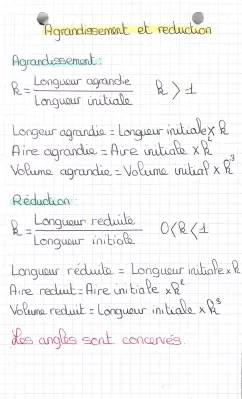 Agrandissement et reduction
Agrandissement:
k = Longueur agrandie / Longueur initiale    k > 1
Longeur agrandie = Longueur initiale x k
Aire agrandie = Aire initiale x k²
Volume agrandie = Volume initial x k³
Réduction:
k = Longueur reduite / Longueur initiale    0<k<1
Longueur réduite = Longueur initiale x k
Aire reduit = Aire initiale x k²
Volume reduit = Longueur initiale x k³
Les angles sont concervés.